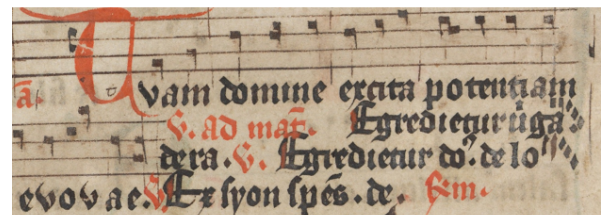 a. Tuam domine excita potentiam
V. ad mat. Egredietur uirga
de ra. V. Egredietur do. de lo
evovae. V. Ex syon spes. de. fem.